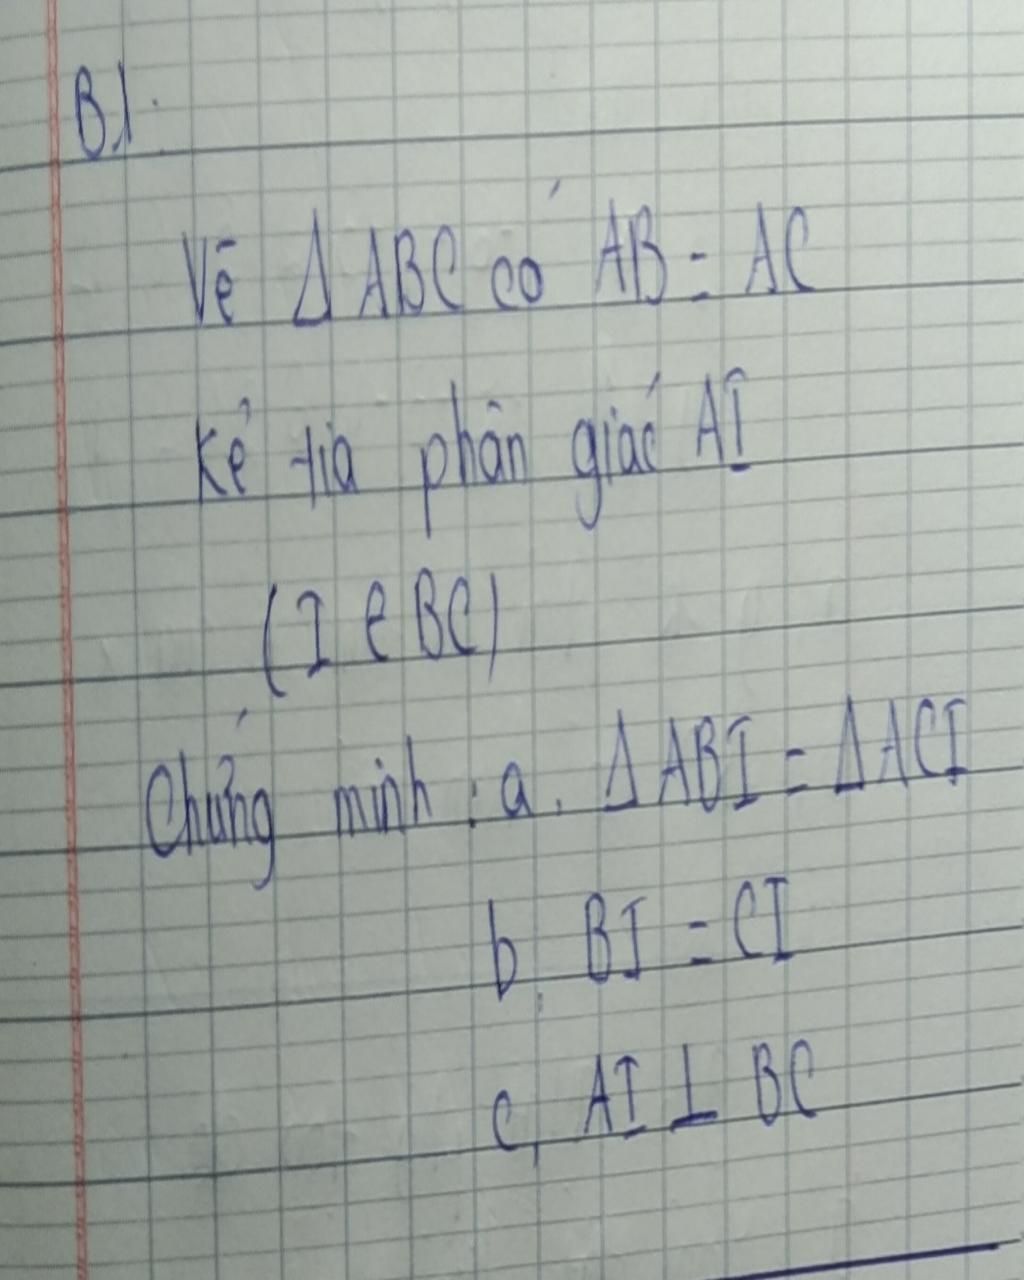 B1.
Vẽ Δ ABC có AB = AC
Kẻ tia phân giác AI
(I ∈ BC)
Chứng minh : a. Δ ABI = Δ ACI
b, BI = CI
c, AI ⊥ BC